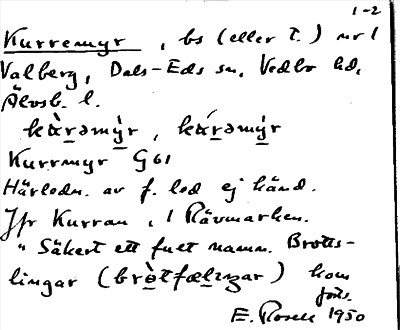 1-2
Kurremyr, bs (eller t.) nr 1
Valberg, Dals-Eds sn, Vedbo hd,
Älvsb. l.
kàrəmỳr, kárəmýr
Kurrmyr G61
Härledn. av f. led ej känd.
Jfr Kurran, i Rävmarken.
"Säkert ett fult namn. Brotts-
lingar (brò̱tfæḻıŋar) kom
förs.
E. Rosell 1950